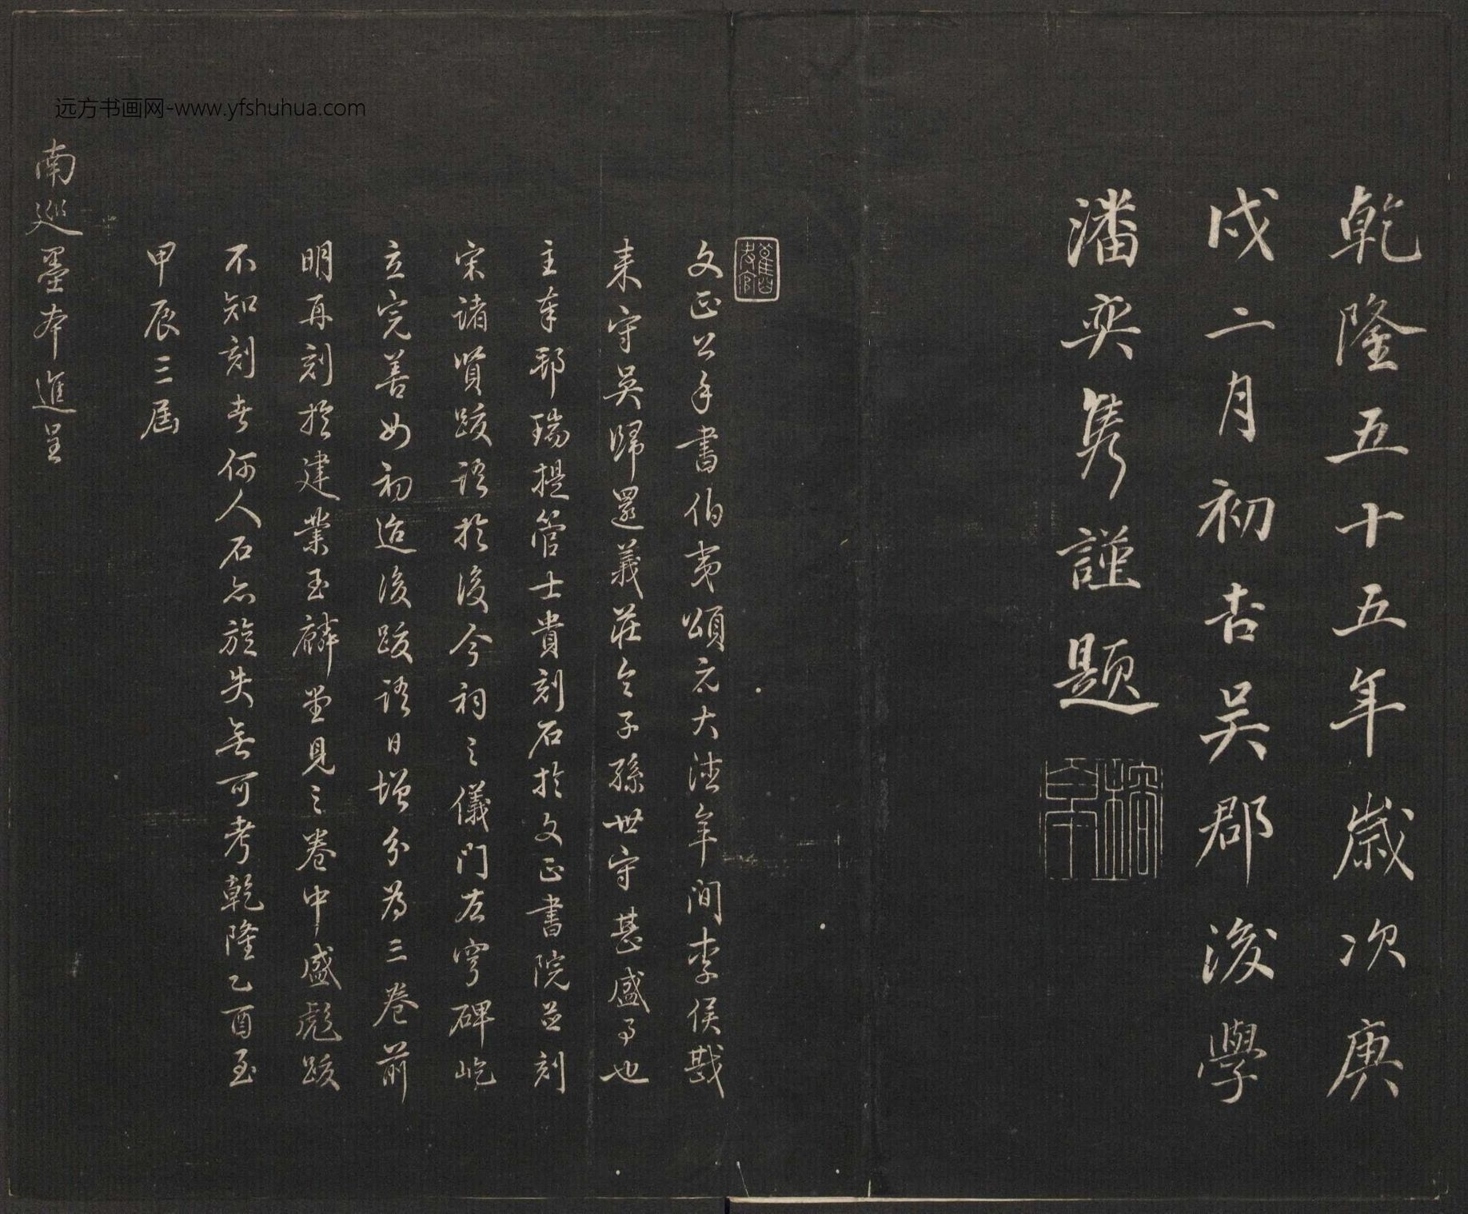 乾隆五十五年歲次庚
戌二月初吉吳郡後學
潘奕雋謹題
文正公手書伯夷頌元大德年間李侯戡
来守吳歸還義莊令子孫世守甚盛事也
主奉邨瑞提管士貴刻石於文正書院並刻
宋諸賢跋語於後今祠之儀門左穹碑屹
立完善如初迨後跋語日增分為三卷前
明再刻於建業玉麟堂見之卷中盛彪跋
不知刻者何人石亦旋失無可考乾隆乙酉至
甲辰三屆
南巡墨本進呈
远方书画网-www.yfshuhua.com